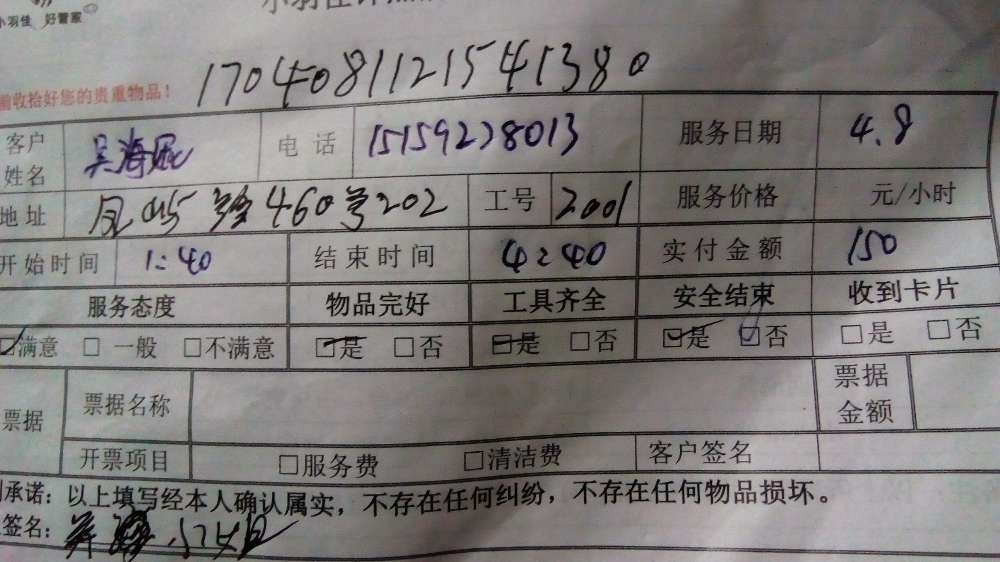 小羽佳 好管家
小羽佳
1704081121541380
前收拾好您的贵重物品！
客户姓名 吴海 电话 15159228013 服务日期 4.8
地址 460号202 工号 2001 服务价格 元/小时
开始时间 1:40 结束时间 4:40 实付金额 150
服务态度 物品完好 工具齐全 安全结束 收到卡片
☑满意 □一般 □不满意 ☑是 □否 ☑是 □否 ☑是 ☑否 □是 □否
票据 票据名称 票据金额
开票项目 □服务费 □清洁费 客户签名
承诺：以上填写经本人确认属实，不存在任何纠纷，不存在任何物品损坏。
签名： 小姐